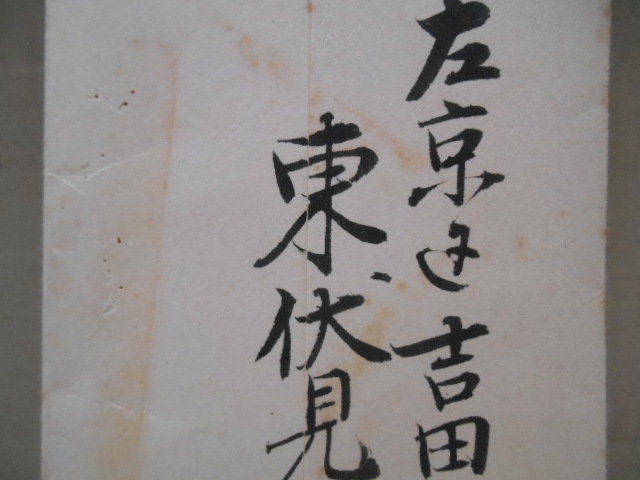 左京区吉田
東伏見